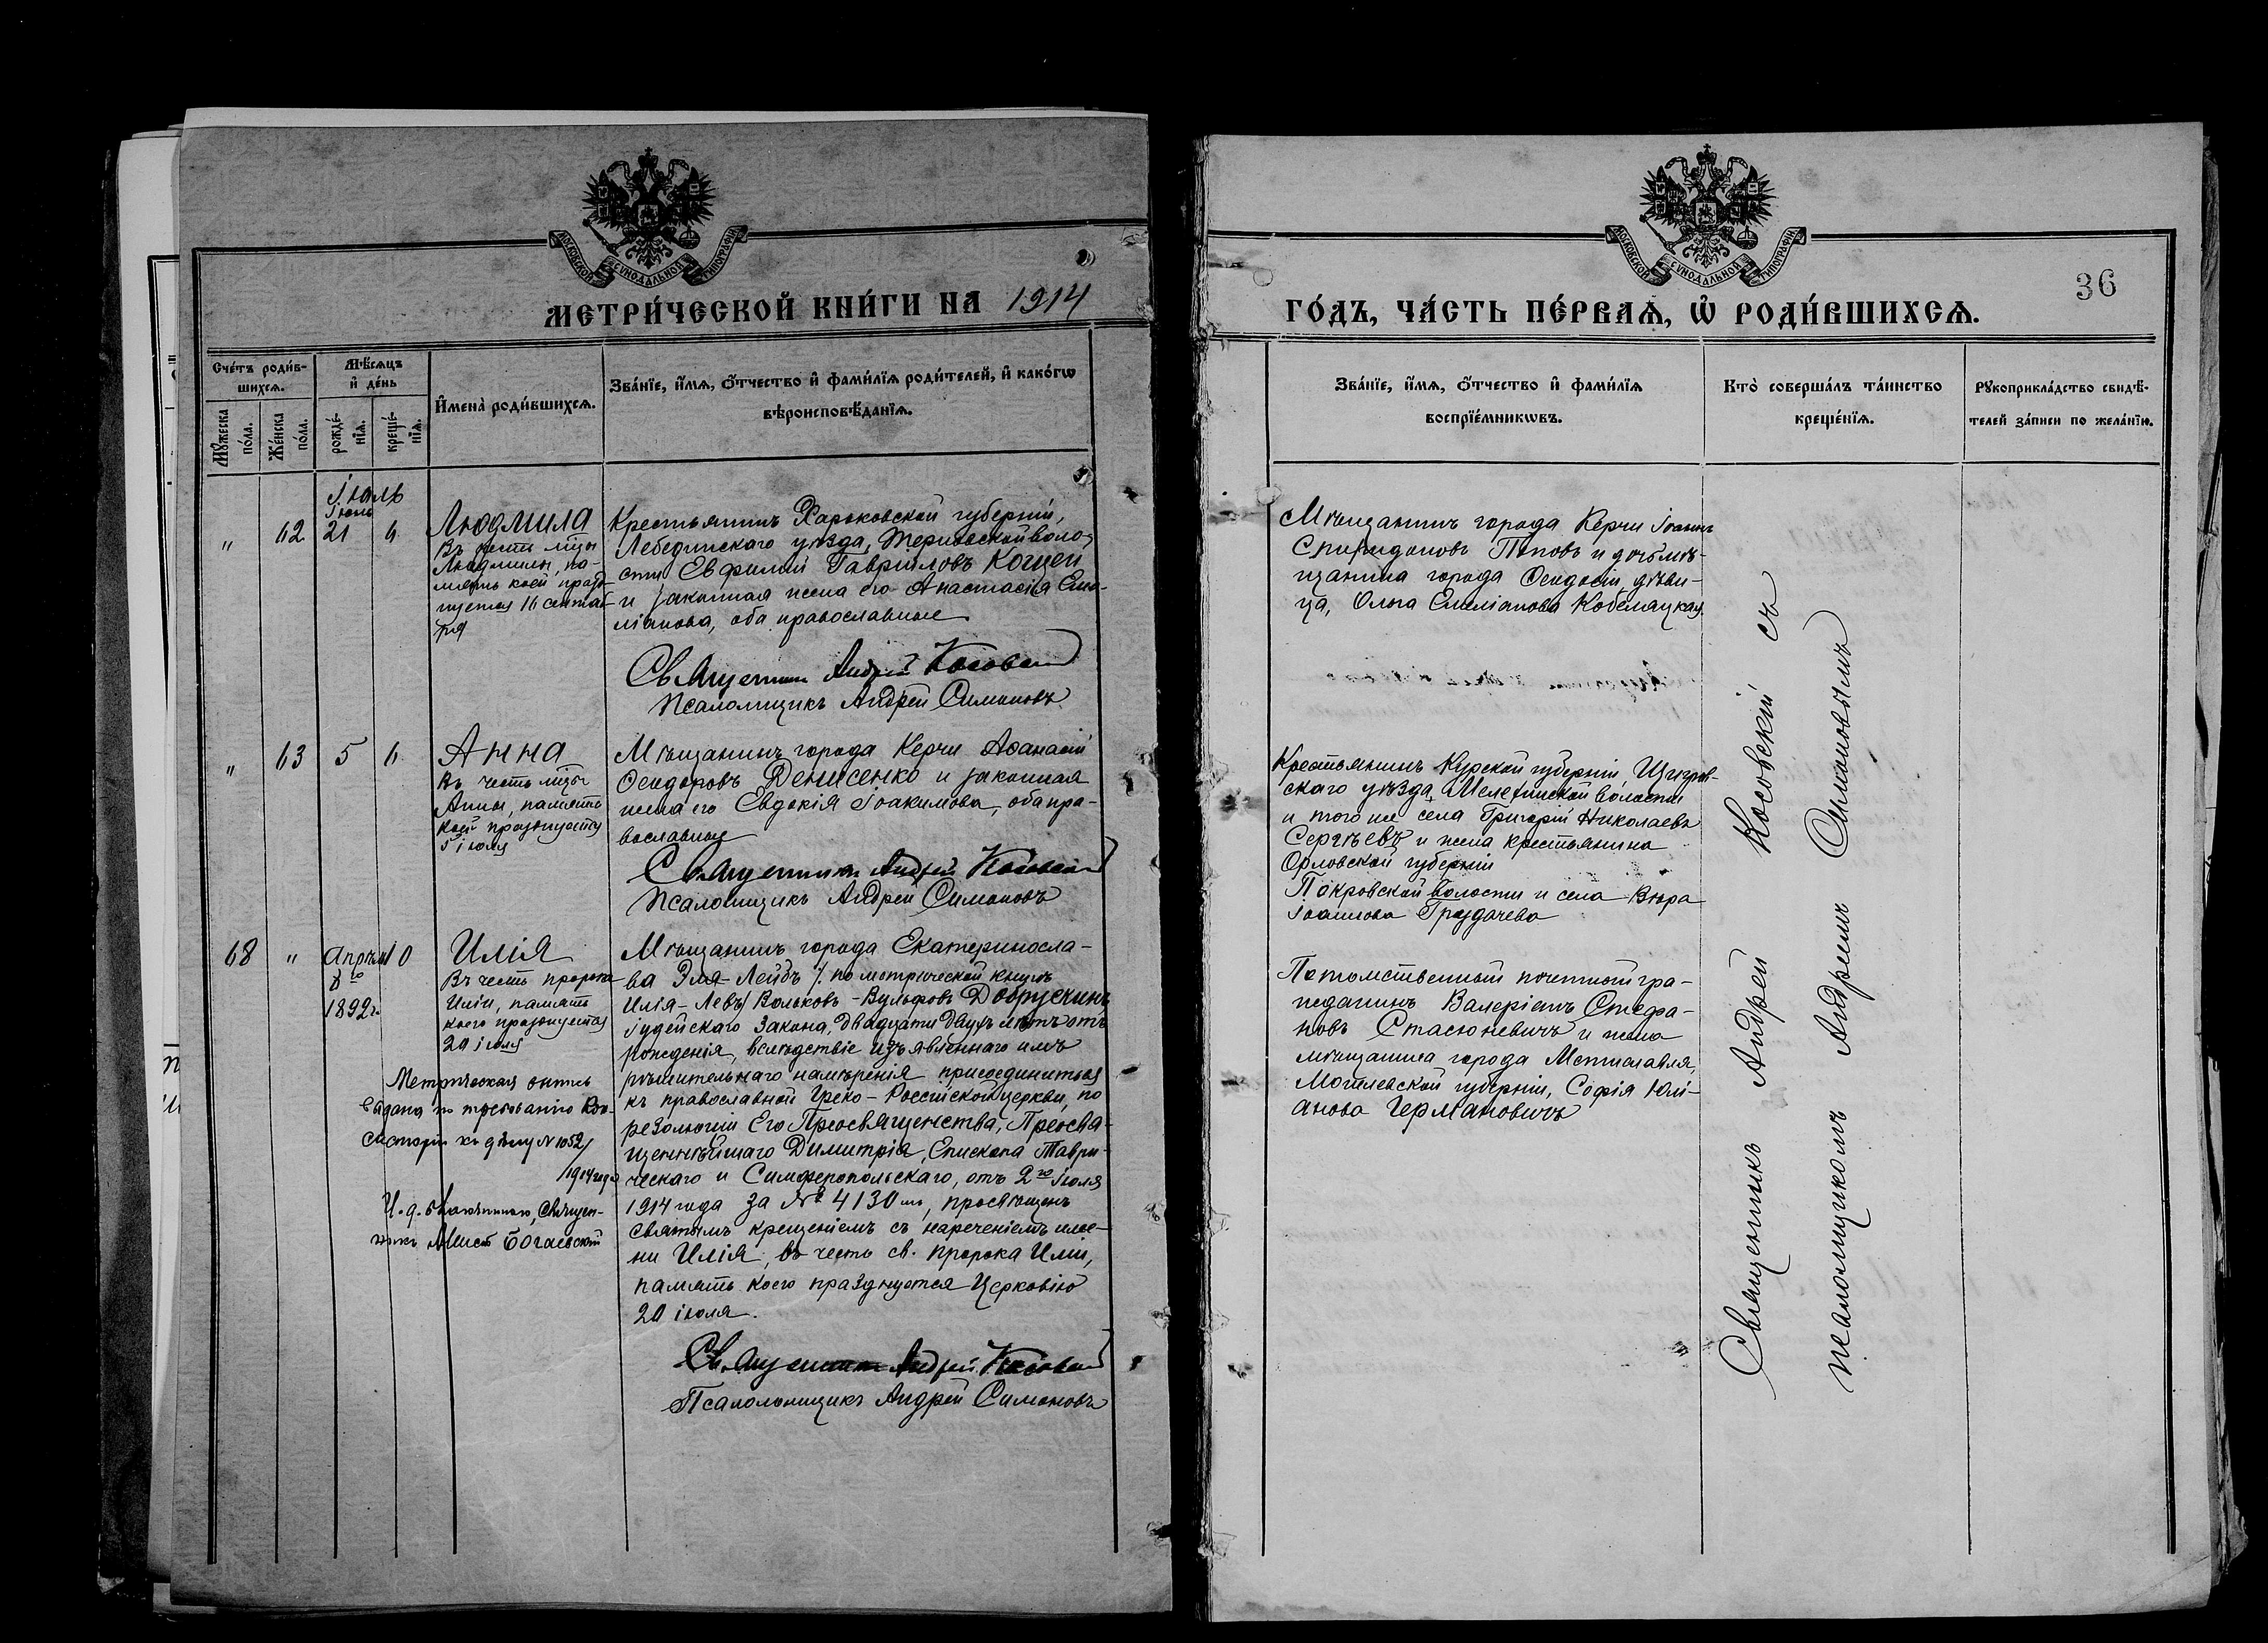 МОСКОВСКОЙ СУНОДАЛЬНОЙ ТИПОГРАФІИ
МЕТРИ́ЧЕСКОЙ КНИ́ГИ НА 1914
Сче́тъ роди́в-
шихсѧ.
Мꙋ́жеска
по́ла.
Же́нска
по́ла.
Мѣ́сѧцъ
и҆ де́нь
рожде́-
нїѧ.
креще́-
нїѧ.
И҆мена̀ роди́вшихсѧ.
Зва́нїе, и҆́мѧ, ѻ҆́тчество и҆ фами́лїѧ роди́телей, и҆ како́гѡ
вѣроисповѣ́данїѧ.
Іюль
Іюнь
" 62 21 6
Людмила
Въ честь мцы
Людмилы, па-
мять коей празд-
нуется 16 сентяб-
ря
Крестьянинъ Харьковской губерніи,
Лебединскаго уѣзда, Терновской воло-
сти Евфимій Гавриловъ Кощей
и законная жена его Анастасія Еми-
ліанова, оба православные
Священникъ Андрей Косовскій
Псаломщикъ Андрей Симоновъ
" 63 5 6
Анна
Въ честь мцы
Анны, память
коей празднуется
5 іюля
Мѣщанинъ города Керчи Аѳанасій
Ѳеодоровъ Денисенко и законная
жена его Евдокія Іоакимова, оба пра-
вославные
Священникъ Андрей Косовскій
Псаломщикъ Андрей Симоновъ
68 " Апрѣля 10
8го
1892 г.
Илія
Въ честь пророка
Иліи, память
коего празднуется
20 іюля
Метрическая выпись
выдана по требованію Кон-
систоріи къ дѣлу № 1052/
1914 года
И. д. благочиннаго, Священ-
никъ Богаевскій
Мѣщанинъ города Екатериносла-
ва Эля-Лейбъ /: по метрической книгѣ
Илія-Левъ/ Вольковъ-Вульфовъ Добрускинъ
Іудейскаго Закона, двадцати двухъ лѣтъ отъ
рожденія, вслѣдствіе изъявленнаго имъ
рѣшительнаго намѣренія присоединиться
къ православной Греко-Россійской церкви, по
резолюціи Его Преосвященства, Преосвя-
щеннѣйшаго Димитрія, Епископа Таври-
ческаго и Симферопольскаго, отъ 2го Іюля
1914 года за № 4130мъ, просвѣщенъ
Святымъ крещеніемъ съ нареченіемъ име-
ни Илія, въ честь св. пророка Иліи,
память коего празднуется Церковію
20 іюля.
Священникъ Андрей Косовскій
Псаломщикъ Андрей Симоновъ
МОСКОВСКОЙ СУНОДАЛЬНОЙ ТИПОГРАФІИ
36
ГО́ДЪ, ЧА́СТЬ ПЕ́РВАѦ, Ѡ҆ РОДИ́ВШИХСѦ.
Зва́нїе, и҆́мѧ, ѻ҆́тчество и҆ фами́лїѧ
воспрїе́мникѡвъ.
Кто̀ соверша́лъ та́инство
креще́нїѧ.
Рꙋкоприкла́дство свидѣ́-
телей за́писи по жела́нїю.
Мѣщанинъ города Керчи Іоаннъ
Спиридоновъ Поповъ и дочь мѣ-
щанина города Ѳеодосіи, дѣви-
ца, Ольга Емиліанова Кобеляцкая.
Крестьянинъ Курской губерніи, Щигров-
скаго уѣзда, Мелехинской волости
и того же села Григорій Николаевъ
Сергѣевъ и жена крестьянина
Орловской губерніи
Покровской волости и села Вѣра
Іоаннова Груздачева
Потомственный почетный гра-
жданинъ Валеріанъ Стефа-
новъ Стасюневичъ и жена
мѣщанина города Мстиславля,
Могилевской губерніи, Софія Юлі-
анова Германовичъ
Священникъ Андрей Косовскій съ
псаломщикомъ Андреемъ Симоновымъ